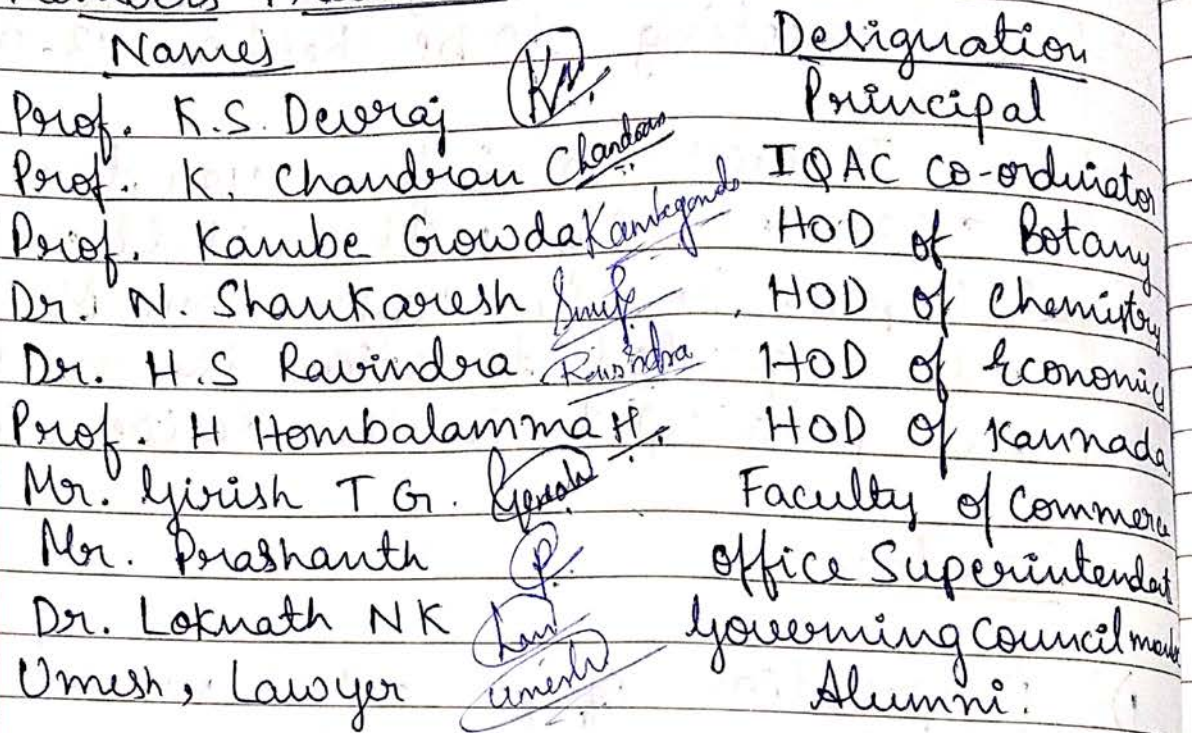 Names Designation
Prof. K.S. Devraj Principal
Prof. K. Chandran Chandran IQAC Co-ordinator
Prof. Kambe Gowda Kambegowda HOD of Botany
Dr. N. Shankaresh HOD of Chemistry
Dr. H.S Ravindra Ravindra HOD of Economics
Prof. H Hombalamma H. HOD of Kannada
Mr. Girish T G. Girish Faculty of Commerce
Mr. Prashanth P. Office Superintendat
Dr. Loknath NK Governing Council
Umesh, Lawyer Umesh Alumni.